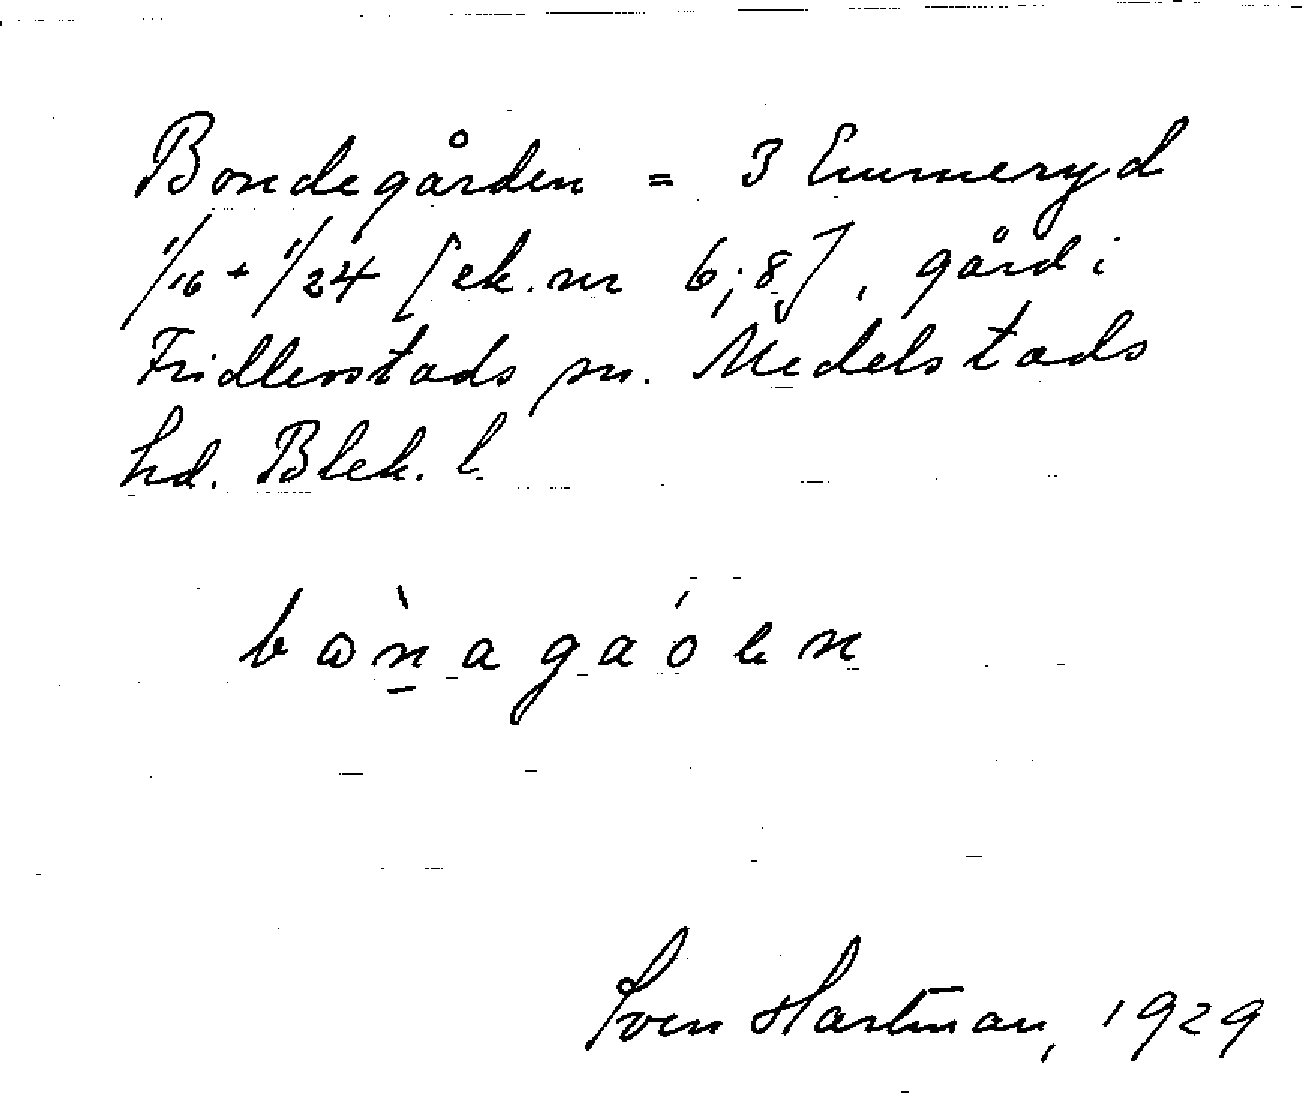 Bondegården = 3 Emmeryd
1/16 + 1/24 [ek. nr 6; 8], gård i
Fridlevstads sn. Medelstads
hd. Blek. l.
Sven Hartman, 1929